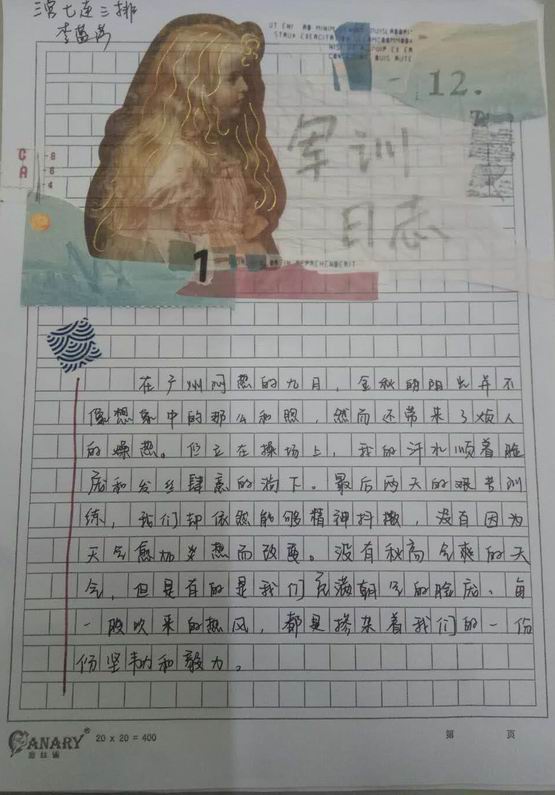 三营七连三排
李富海
UT ENI AD MINIM
NISI
DUIS AUTE
12.
军训
日志
C
A
8
6
4
1
IN REPREHENDERIT
在广州闷热的九月，金秋的阳光并不
像想象中的那么和煦，然而还带来了烦人
的燥热。伫立在操场上，我的汗水顺着脸
庞和发丝肆意的淌下。最后两天的艰苦训
练，我们却依然能够精神抖擞，没有因为
天气愈加炎热而改变。没有秋高气爽的天
气，但是有的是我们充满朝气的脸庞、每
一股吹来的热风，都是掺杂着我们的一份
份坚韧和毅力。
CANARY® 20 x 20 = 400 第 页